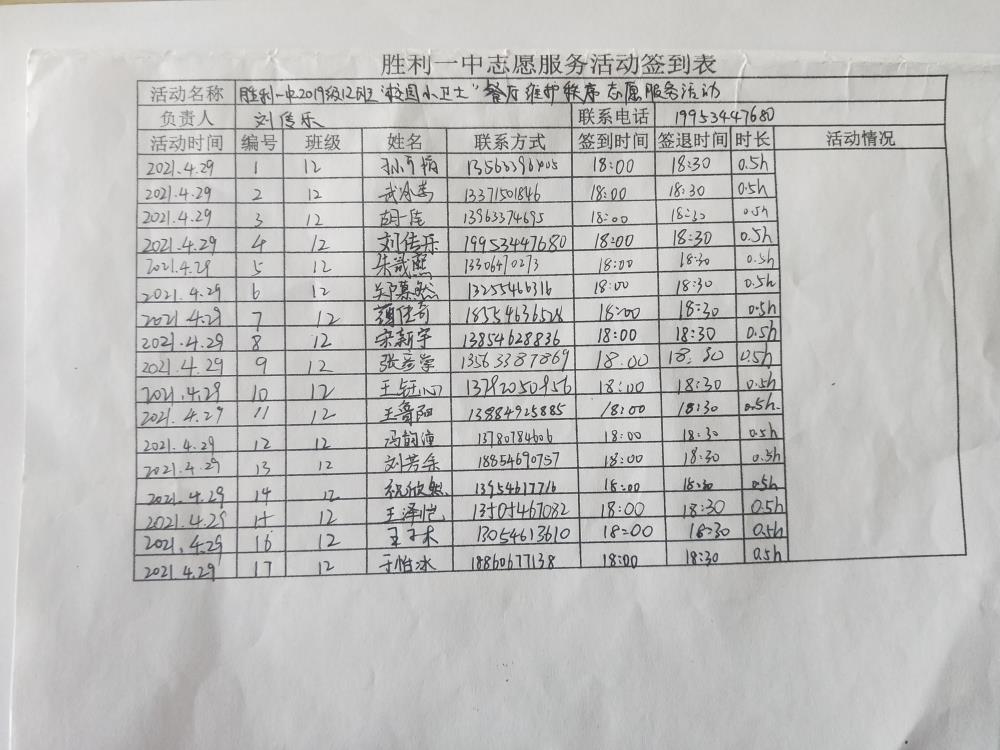 胜利一中志愿服务活动签到表
活动名称 胜利一中2019级12班"校园小卫士"餐厅维护秩序志愿服务活动
负责人 刘传乐 联系电话 19953447680
活动时间 编号 班级 姓名 联系方式 签到时间 签退时间 时长 活动情况
2021.4.29 1 12 18:00 18:30 0.5h
2021.4.29 2 12 13371501846 18:00 18:30 0.5h
2021.4.29 3 12 13963374695 18:00 18:30 0.5h
2021.4.29 4 12 刘传乐 19953447680 18:00 18:30 0.5h
2021.4.29 5 12 13306470273 18:00 18:30 0.5h
2021.4.29 6 12 郑慕然 13255466316 18:00 18:30 0.5h
2021.4.29 7 12 18:00 18:30 0.5h
2021.4.29 8 12 宋新宇 13854628836 18:00 18:30 0.5h
2021.4.29 9 12 13563387869 18:00 18:30 0.5h
2021.4.29 10 12 王钰心 13792050956 18:00 18:30 0.5h
2021.4.29 11 12 王鲁阳 13884925885 18:00 18:30 0.5h
2021.4.29 12 12 13780784606 18:00 18:30 0.5h
2021.4.29 13 12 刘芳余 18854690757 18:00 18:30 0.5h
2021.4.29 14 12 祝欣然 13954617716 18:00 18:30 0.5h
2021.4.29 15 12 王泽恺 18:00 18:30 0.5h
2021.4.29 16 12 王子木 13054613610 18:00 18:30 0.5h
2021.4.29 17 12 于怡冰 18860677138 18:00 18:30 0.5h